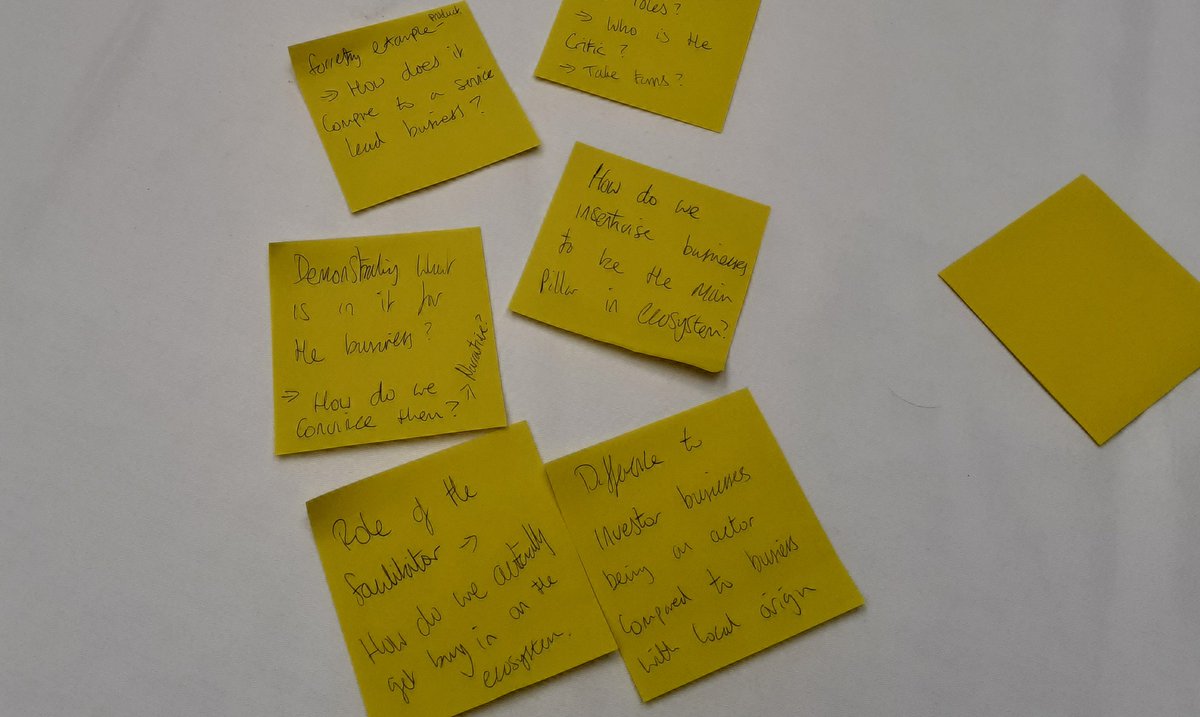 Product
forestry example
→ How does it
Compare to a service
lead business?
roles?
→ Who is the
Critic?
→ Take turns?
How do we
insentivise businesses
to be the main
Pillar in ecosystem?
Demonstrating what
is in it for
the business?
→ How do we
Convince them?
→ Narrative?
Role of the
facilitator →
How do we actually
get buy in on the
ecosystem.
Difference to
investor businesses
being an actor
Compared to business
with local origin